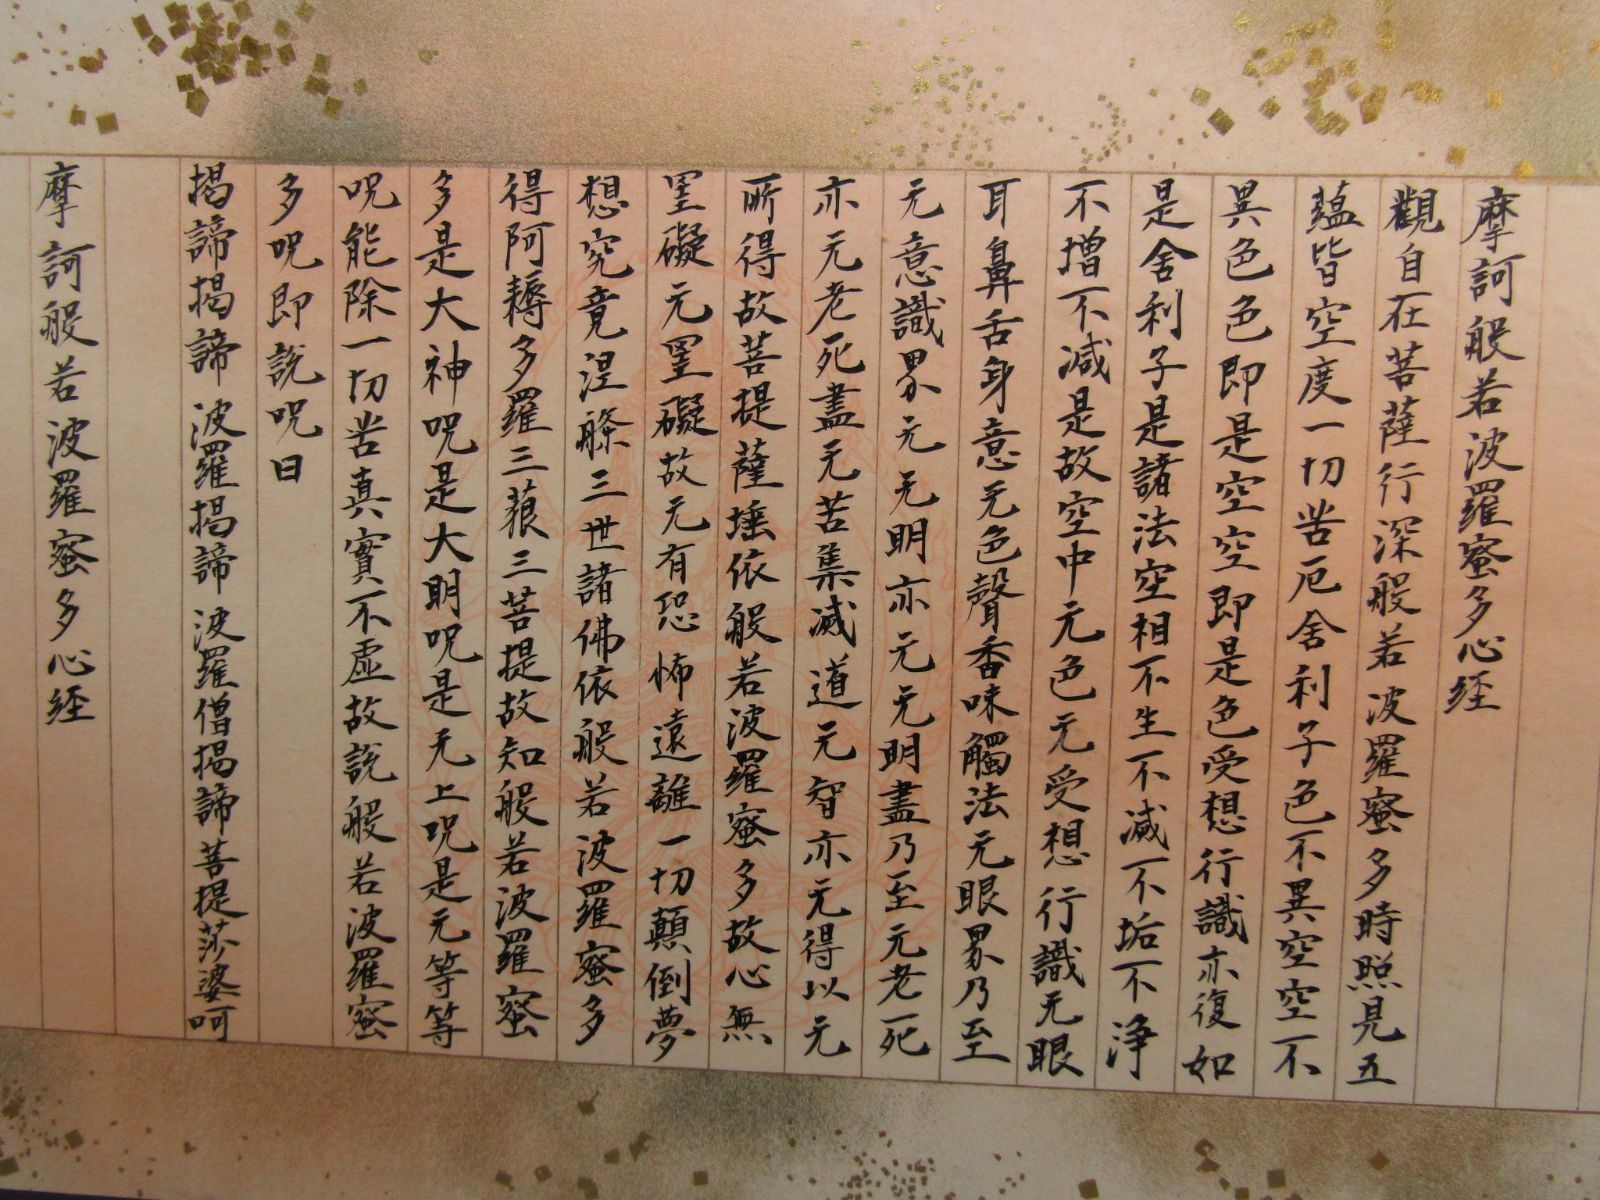 摩訶般若波羅蜜多心経
觀自在菩薩行深般若波羅蜜多時照見五
蘊皆空度一切苦厄舍利子色不異空空不
異色色即是空空即是色受想行識亦復如
是舍利子是諸法空相不生不滅不垢不浄
不增不減是故空中元色元受想行識元眼
耳鼻舌身意元色聲香味觸法元眼界乃至
元意識界元元明亦元元明盡乃至元老死
亦元老死盡元苦集滅道元智亦元得以元
所得故菩提薩埵依般若波羅蜜多故心無
罣礙元罣礙故元有恐怖遠離一切顛倒夢
想究竟涅槃三世諸佛依般若波羅蜜多
得阿耨多羅三藐三菩提故知般若波羅蜜
多是大神呪是大明呪是无上呪是元等等
呪能除一切苦真實不虛故說般若波羅蜜
多呪即說呪曰
揭諦揭諦波羅揭諦波羅僧揭諦菩提莎婆呵
摩訶般若波羅蜜多心経